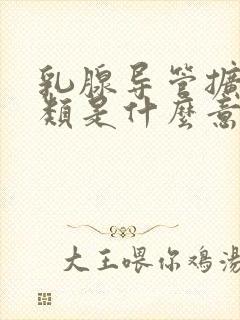 乳腺导管擴
類是什麼意
大王喂你鸡湯